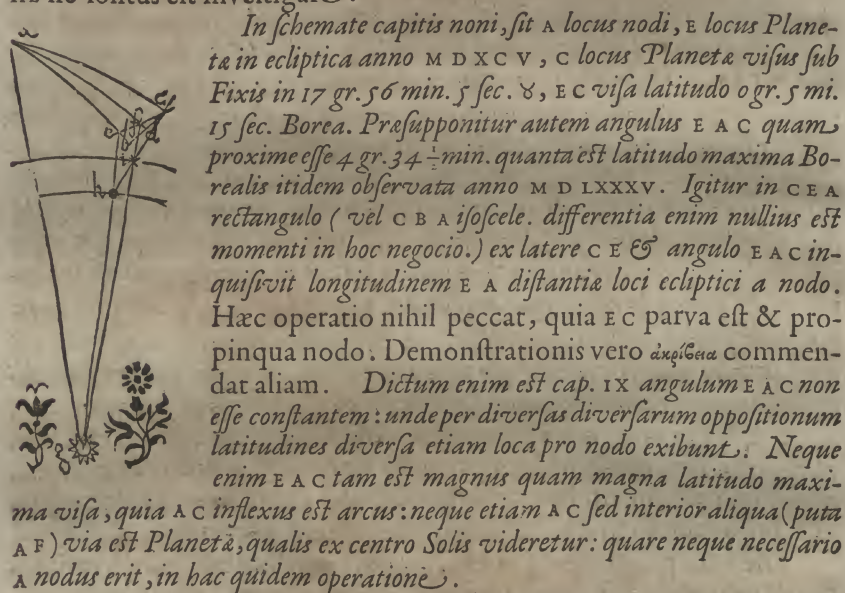 In schemate capitis noni, sit A locus nodi, E locus Plane-
tæ in ecliptica anno M D XC V, C locus Planetæ visus sub
Fixis in 17 gr. 56 min. 5 sec. ♉, E C visa latitudo 0 gr. 5 mi.
15 sec. Borea. Præsupponitur autem angulus E A C quam
proxime esse 4 gr. 34 ½ min. quanta est latitudo maxima Bo-
realis itidem observata anno M D LXXXV. Igitur in C E A
rectangulo ( vel C B A isoscele. differentia enim nullius est
momenti in hoc negocio.) ex latere C E & angulo E A C in-
quisivit longitudinem E A distantiæ loci ecliptici a nodo.
Hæc operatio nihil peccat, quia E C parva est & pro-
pinqua nodo. Demonstrationis vero ἀκρίβεια commen-
dat aliam. Dictum enim est cap. IX angulum E A C non
esse constantem : unde per diversas diversarum oppositionum
latitudines diversa etiam loca pro nodo exibunt. Neque
enim E A C tam est magnus quam magna latitudo maxi-
ma visa, quia A C inflexus est arcus : neque etiam A C sed interior aliqua (puta
A F) via est Planetæ, qualis ex centro Solis videretur : quare neque necessario
A nodus erit, in hac quidem operatione.
a
e
f
c
d
b
h
g